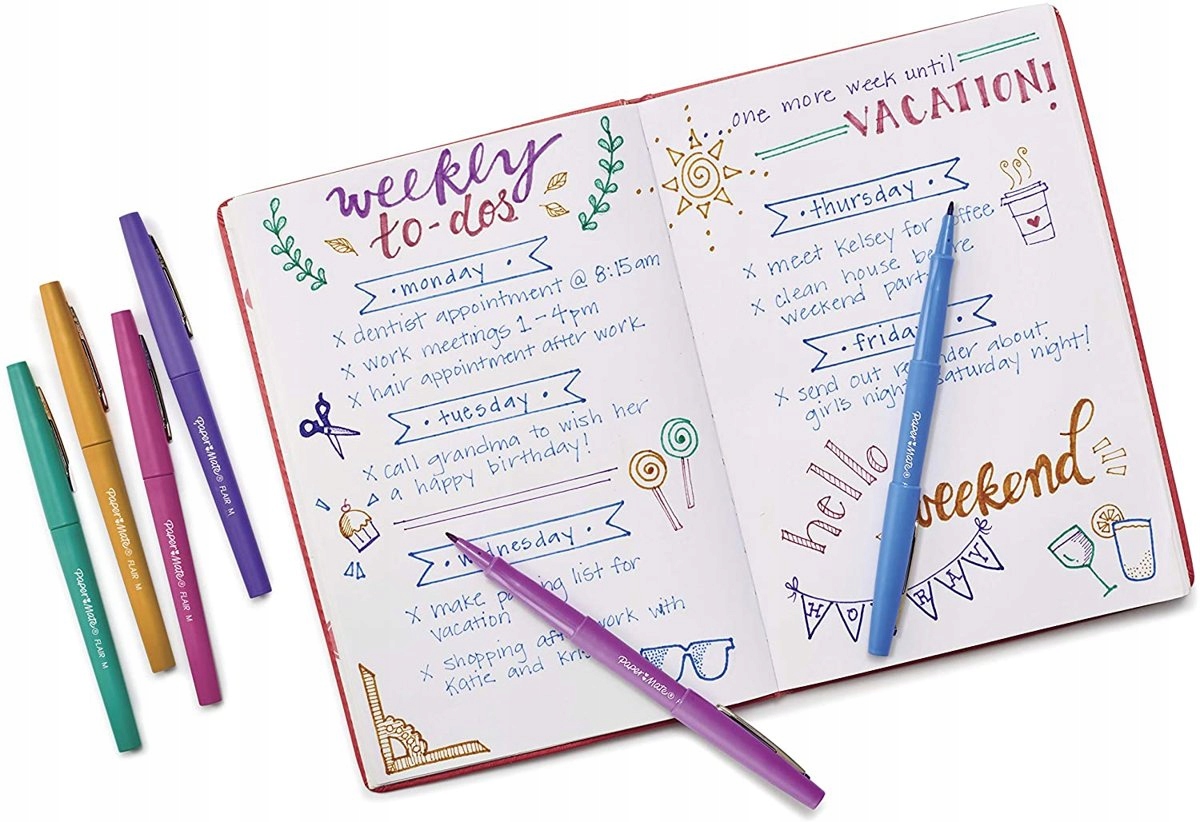 weekly
to-dos
• monday •
x dentist appointment @ 8:15am
x work meetings 1-4pm
x hair appointment after work
• tuesday •
x call grandma to wish her
a happy birthday!
wednesday •
x make list for
vacation
x shopping work with
Katie and
...one more week until
VACATION!
• thursday •
x meet Kelsey for coffee
x clean house before
weekend party
• friday •
x send out reminder about
girl's night Saturday night!
hello
weekend
HOORAY
Paper Mate® FLAIR M
Paper Mate® FLAIR M
Paper Mate® FLAIR M
Paper Mate® FLAIR M
Paper Mate®
Paper Mate®